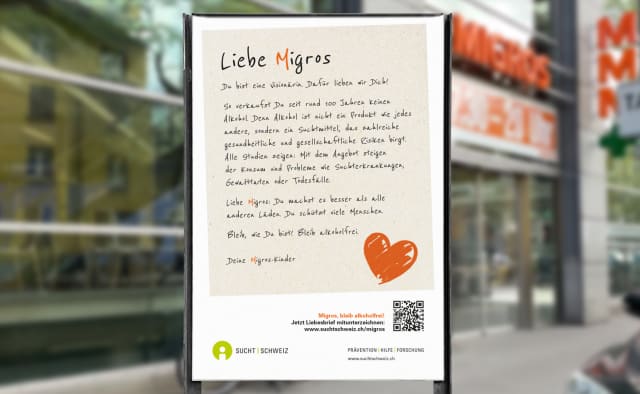 Liebe Migros
Du bist eine Visionärin. Dafür lieben wir Dich!
So verkaufst Du seit rund 100 Jahren keinen
Alkohol. Denn Alkohol ist nicht ein Produkt wie jedes
andere, sondern ein Suchtmittel, das zahlreiche
gesundheitliche und gesellschaftliche Risiken birgt.
Alle Studien zeigen: Mit dem Angebot steigen
der Konsum und Probleme wie Suchterkrankungen,
Gewalttaten oder Todesfälle.
Liebe Migros: Du machst es besser als alle
anderen Läden. Du schützt viele Menschen.
Bleib, wie Du bist! Bleib alkoholfrei.
Deine Migros-Kinder
Migros, bleib alkoholfrei!
Jetzt Liebesbrief mitunterzeichnen:
www.suchtschweiz.ch/migros
SUCHT | SCHWEIZ
PRÄVENTION | HILFE | FORSCHUNG
www.suchtschweiz.ch
MIGROS
M
M
M